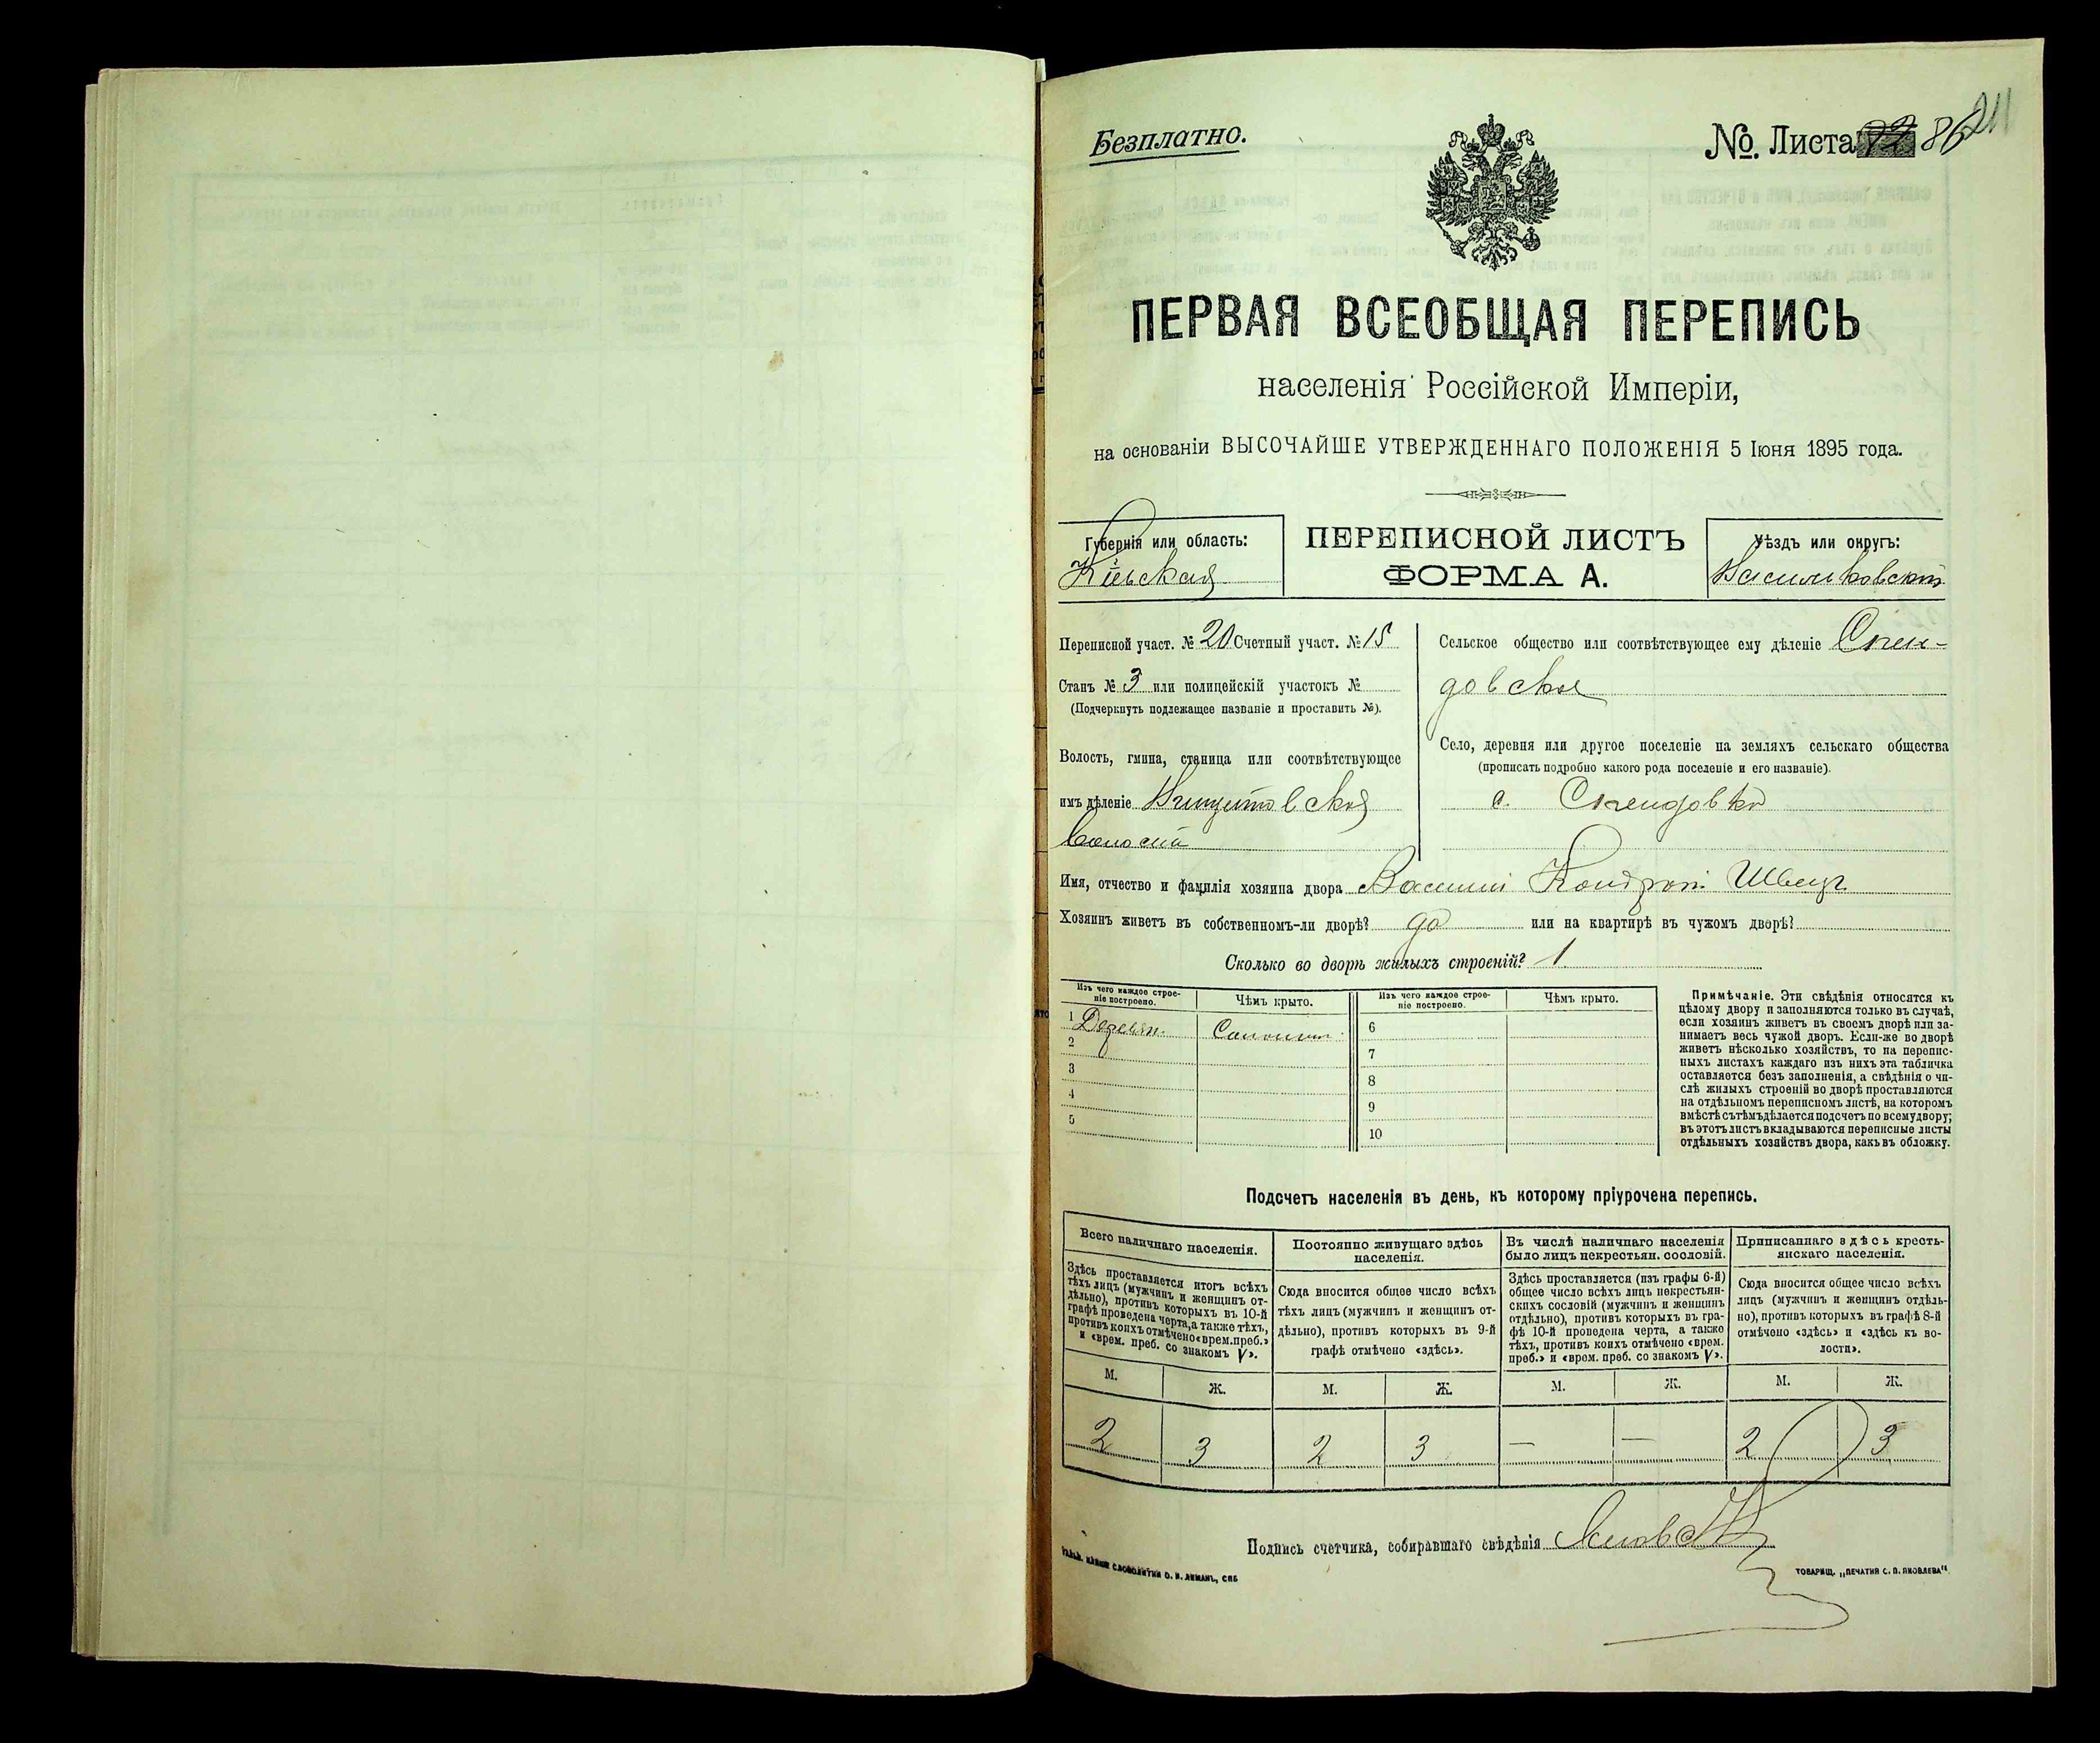 Безплатно.
№. Листа 86
211
ПЕРВАЯ ВСЕОБЩАЯ ПЕРЕПИСЬ
населенія Россійской Имперіи,
на основаніи ВЫСОЧАЙШЕ УТВЕРЖДЕННАГО ПОЛОЖЕНІЯ 5 Іюня 1895 года.
Губернія или область:
Кіевская
ПЕРЕПИСНОЙ ЛИСТЪ
ФОРМА А.
Уѣздъ или округъ:
Васильковскій
Переписной участ. № 20 Счетный участ. № 15
Станъ № 3 или полицейскій участокъ №
(Подчеркнуть подлежащее названіе и проставить №).
Волость, гмина, станица или соотвѣтствующее
имъ дѣленіе
волость
Сельское общество или соотвѣтствующее ему дѣленіе
довское
Село, деревня или другое поселеніе на земляхъ сельскаго общества
(прописать подробно какого рода поселеніе и его названіе).
с.
Имя, отчество и фамилія хозяина двора Василій Кондрат. Швецъ
Хозяинъ живетъ въ собственномъ-ли дворѣ? да или на квартирѣ въ чужомъ дворѣ?
Сколько во дворѣ жилыхъ строеній? 1
Изъ чего каждое строе-
ніе построено.
Чѣмъ крыто.
1 Деревян. Солом.
2
3
4
5
Изъ чего каждое строе-
ніе построено.
Чѣмъ крыто.
6
7
8
9
10
Примѣчаніе. Эти свѣдѣнія относятся къ
цѣлому двору и заполняются только въ случаѣ,
если хозяинъ живетъ въ своемъ дворѣ или за-
нимаетъ весь чужой дворъ. Если-же во дворѣ
живетъ нѣсколько хозяйствъ, то на перепис-
ныхъ листахъ каждаго изъ нихъ эта табличка
оставляется безъ заполненія, а свѣдѣнія о чи-
слѣ жилыхъ строеній во дворѣ проставляются
на отдѣльномъ переписномъ листѣ, на которомъ
вмѣстѣ съ тѣмъ дѣлается подсчетъ по всему двору;
въ этотъ листъ вкладываются переписные листы
отдѣльныхъ хозяйствъ двора, какъ въ обложку.
Подсчетъ населенія въ день, къ которому пріурочена перепись.
Всего наличнаго населенія.
Здѣсь проставляется итогъ всѣхъ
тѣхъ лицъ (мужчинъ и женщинъ от-
дѣльно), противъ которыхъ въ 10-й
графѣ проведена черта, а также тѣхъ,
противъ коихъ отмѣчено «врем. преб.»
и «врем. преб. со знакомъ V».
М. Ж.
2 3
Постоянно живущаго здѣсь
населенія.
Сюда вносится общее число всѣхъ
тѣхъ лицъ (мужчинъ и женщинъ от-
дѣльно), противъ которыхъ въ 9-й
графѣ отмѣчено «здѣсь».
М. Ж.
2 3
Въ числѣ наличнаго населенія
было лицъ некрестьян. сословій.
Здѣсь проставляется (изъ графы 6-й)
общее число всѣхъ лицъ некрестьян-
скихъ сословій (мужчинъ и женщинъ
отдѣльно), противъ которыхъ въ гра-
фѣ 10-й проведена черта, а также
тѣхъ, противъ коихъ отмѣчено «врем.
преб.» и «врем. преб. со знакомъ V».
М. Ж.
— —
Приписаннаго здѣсь кресть-
янскаго населенія.
Сюда вносится общее число всѣхъ
лицъ (мужчинъ и женщинъ отдѣль-
но), противъ которыхъ въ графѣ 8-й
отмѣчено «здѣсь» и «здѣсь къ во-
лости».
М. Ж.
2 3
Подпись счетчика, собиравшаго свѣдѣнія
СЛОВОЛИТНИ О. И. ЛЕМАНЪ, СПБ
ТОВАРИЩ. „ПЕЧАТНЯ С. П. ЯКОВЛЕВА“